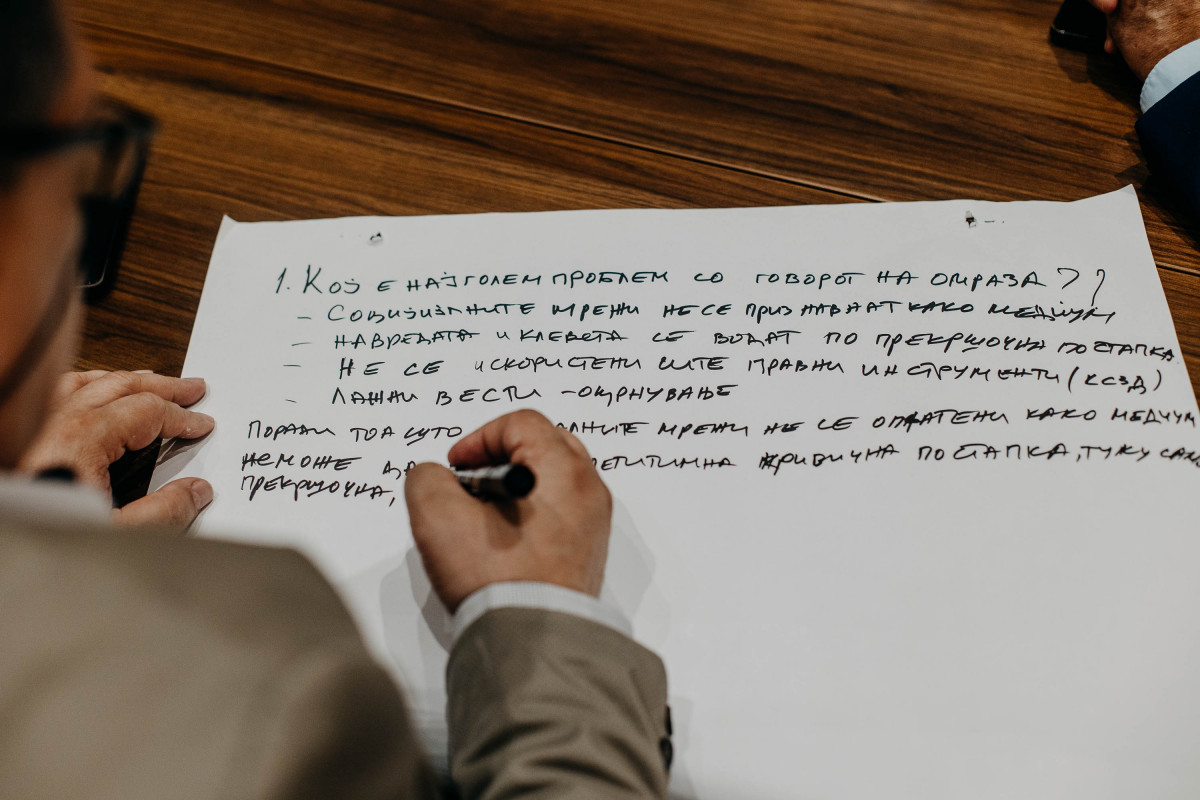 1. Кој е најголем проблем со говорот на омраза??
– Социјалните мрежи не се признаваат како медиум
– навредата и клевета се водат по прекршочна постапка
– не се искористени сите правни инструменти (КСЗД)
– лажни вести – оцрнување
Поради тоа што алните мрежи не се опфатени како медиум
неможе да кривична постапка, туку само
прекршочна,